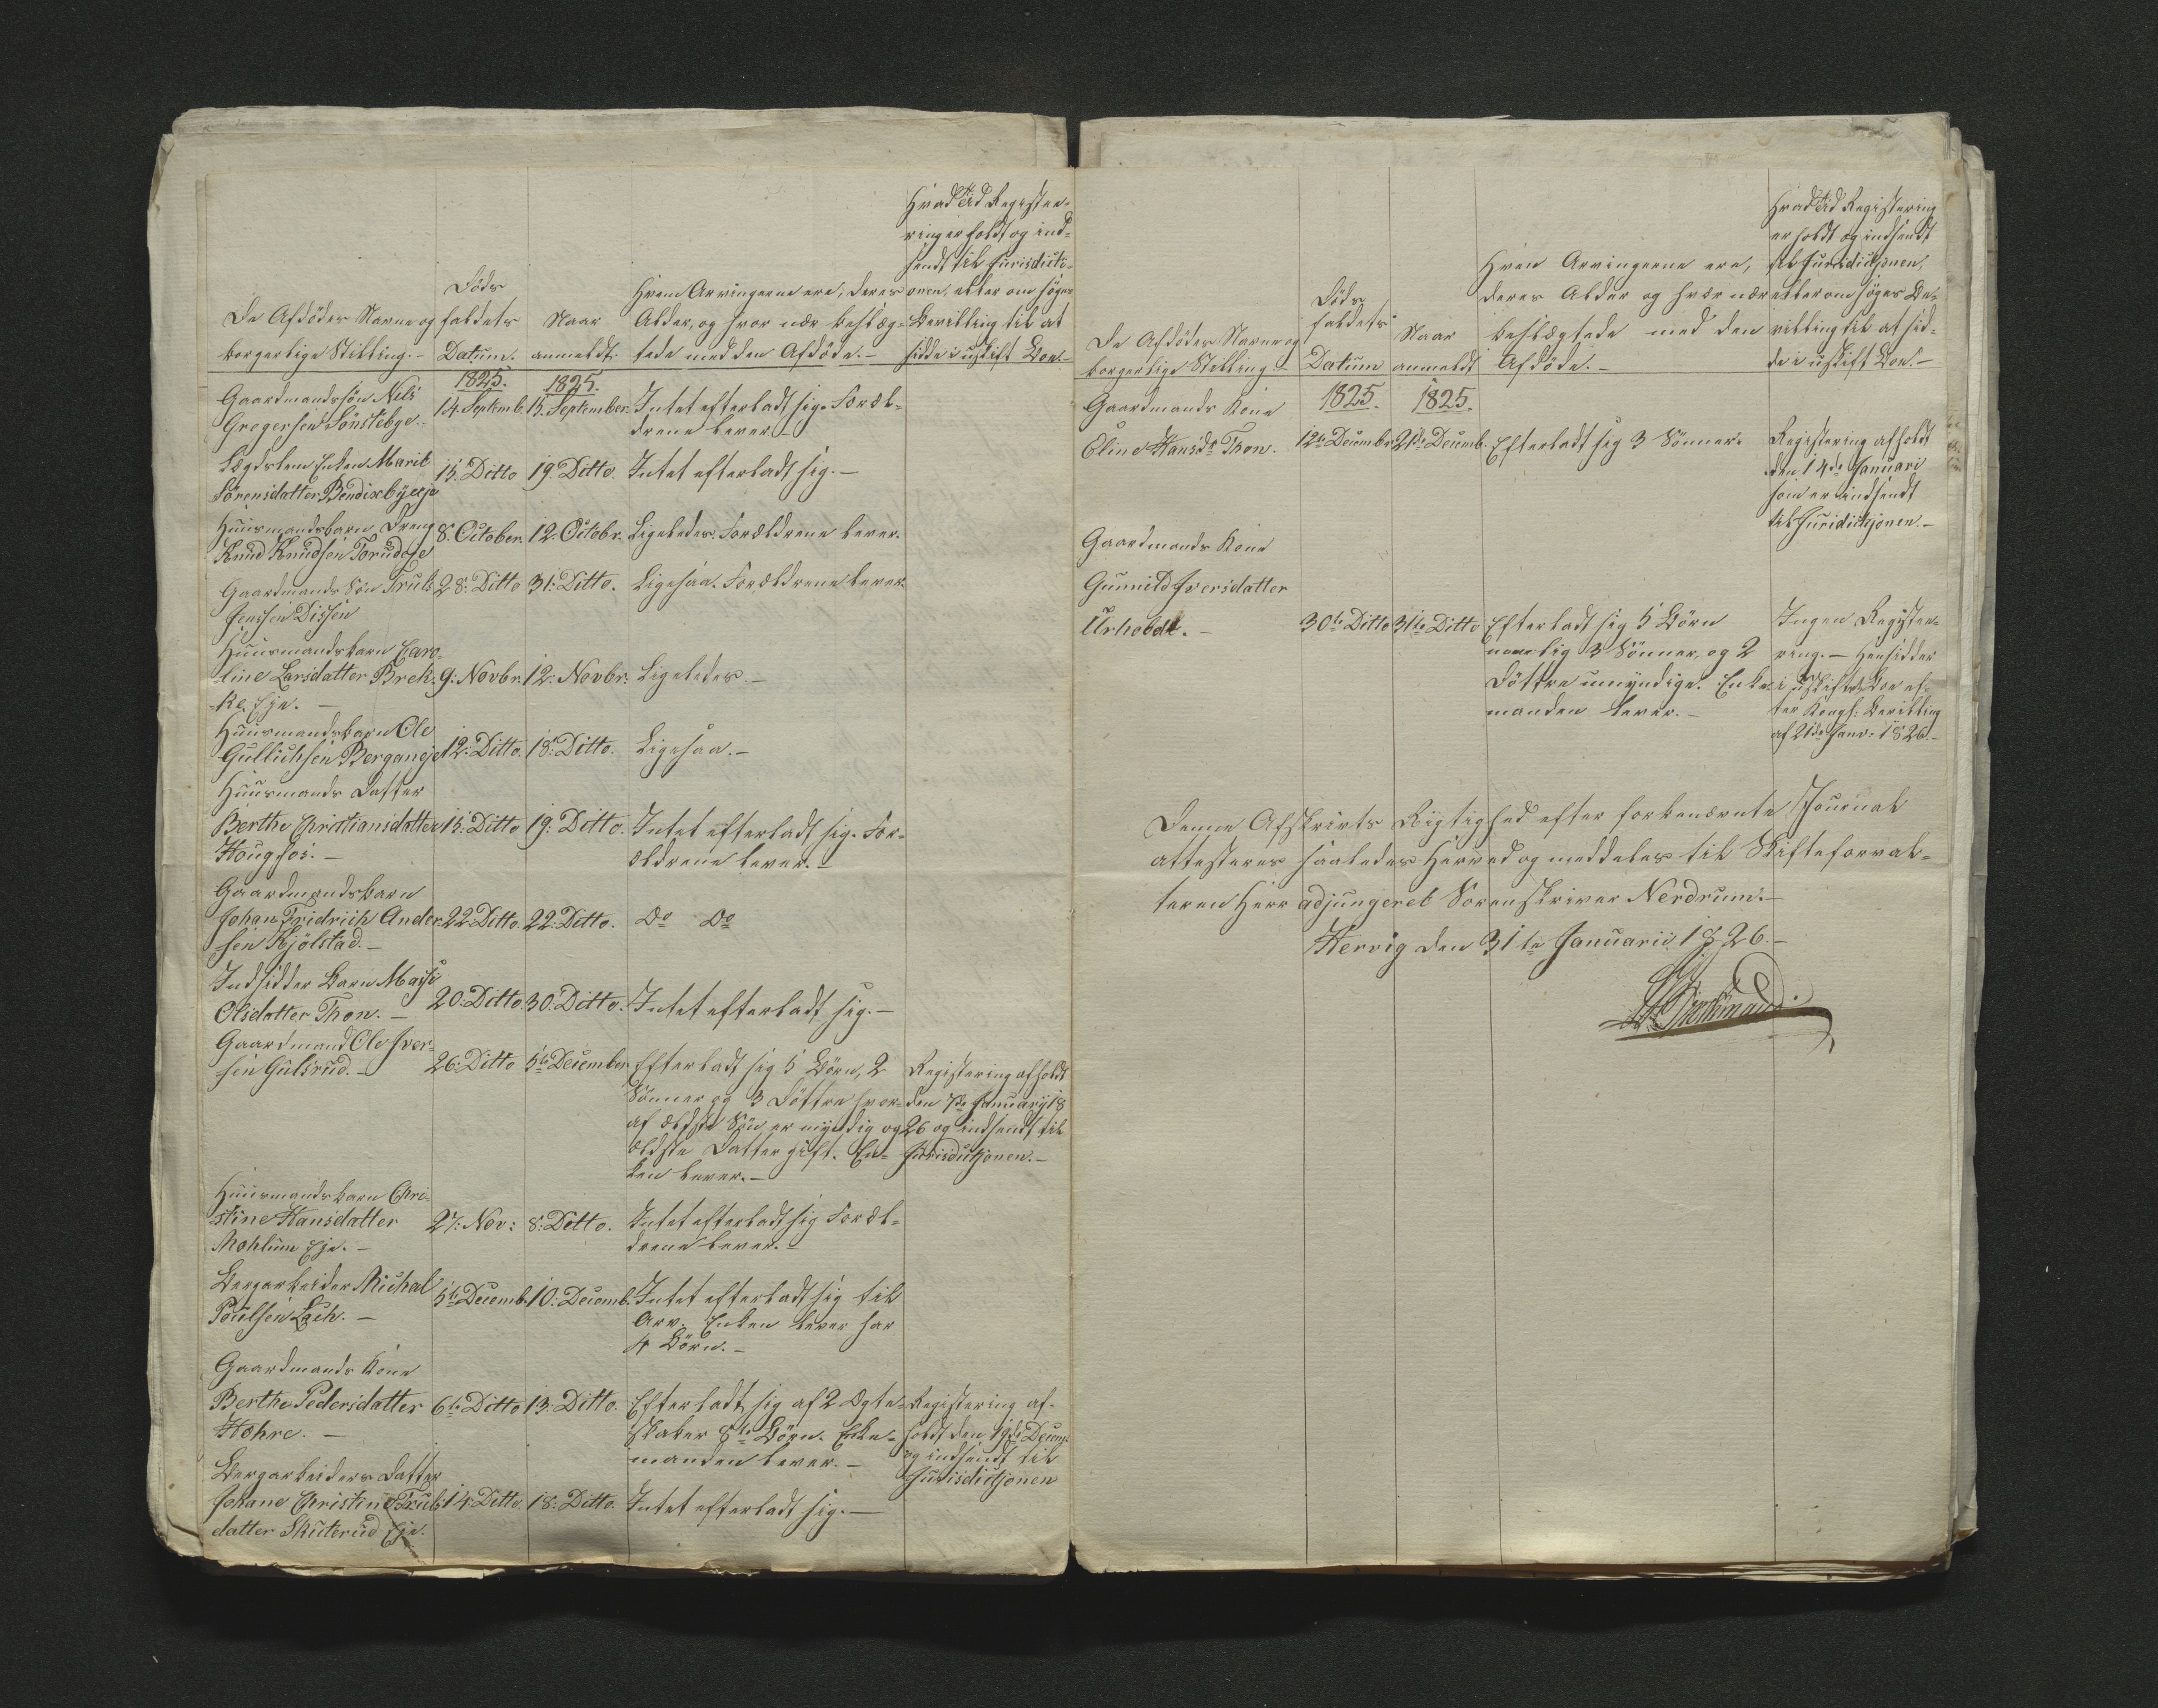 De Afdödes Navne og
borgerlige Stilling.-
Döds
faldets
Datum.
Naar
anmeldt.
Hvem Arvingerne ere, deres
Alder, og hvor nær beslæg-
tede med den Afdöde.-
Hvad Tid Registee-
ring er holdt og ind-
sendt til Jurisdicti-
onen, eller om söges
Bevilling til at
sidde i uskift Boe.-
1825.
1825.
Gaardmandssön Nels
Gregersen Sönstebye.-
14. Septemb.
15. September.
Intet efterladt sig. Foræl-
drene lever.-
Lægdslem Enken Marit
Sörensdatter Bendixbyeje
15. Ditto
19. Ditto.
Intet efterladt sig.-
Huusmandsbarn Dreng
Knud Knudsen Torudeje
8. October.
12. Octobr.
Ligeledes. Forældrene lever.
Gaardmands Sön Truls
Jenssen Dissen
28. Ditto
31. Ditto.
Ligesaa. Forældrene lever.
Huusmandsbarn Caro-
line Larsdatter Brek-
ke Eje.-
9. Novbr.
12. Novbr.
Ligeledes.-
Huusmandsbarn Ole
Gullichsen Bergangeje
12. Ditto.
18. Ditto.
Ligesaa.-
Huusmands Datter
Berthe Christiansdatter
Hougfos.-
15. Ditto
19. Ditto.
Intet efterladt sig. For-
ældrene lever.-
Gaardmandsbarn
Johan Fridrich Ander-
sen Kjölstad.-
22. Ditto.
22. Ditto.
Do Do
Indsidder Barn
Olsdatter Thon.-
20. Ditto.
30. Ditto.
Intet efterladt sig.-
Gaardmand Ole Iver-
sen Gulsrud.-
26. Ditto
5te December
Efterladt sig 5 Börn, 2
Sönner og 3 Döttre hvor-
af ældste Sön er myndig og
ældste Datter gift. En-
ken lever.-
Registering afholdt
den 7de Januarij 18
26 og indsendt til
Jurisdictjonen.-
Huusmandsbarn Chri-
stine Hansdatter
Mohlum Eje.-
27. Nov:
8. Ditto.
Intet efterladt sig Foræl-
drene lever.-
Bergarbeider Michal
Poulsen Lach.-
5te Decemb.
10. Decemb.
Intet efterladt sig til
Arv. Enken lever har
4 Börn.-
Gaardmands Kone
Berthe Pedersdatter
Hohre.-
6te Ditto
13. Ditto.
Efterladt sig af 2 Ægte-
skaber 8te Börn. Enke-
manden lever.-
Registering af-
holdt den 19de Decem.
og indsendt til
Jurisdictjonen
Bergarbeiders Datter
Johane Christine Truls
datter Skuterud Eje.
14. Ditto.
18. Ditto.
Intet efterladt sig.-
De Afdödes Navne og
borgerlige Stilling
Döds
faldets
Datum
Naar
anmeldt
Hvem Arvingerne ere,
deres Alder og hvor nær
beslægtede med den
Afdöde.-
Hvad Tid Registering
er holdt og indsendt
til Jurisdictjonen,
eller om söges Be-
villing til at sid-
de i uskift Boe.-
1825.
1825.
Gaardmands Kone
Eline Hansdr Thon.
12te Decembr.
21de Decemb.
Efterladt sig 3 Sönner.
Registering afholdt
den 14de Januari
som er indsendt
til Juridictjonen.-
Gaardmands Kone
Gunnild Iversdatter
Urholdt.-
30te Ditto
31te Ditto
Efterladt sig 5 Börn
nemlig 3 Sönner, og 2
Döttre umyndige. Enke-
manden lever.-
Ingen Registee-
ring.- Hensidder
i uskiftet Boe ef-
ter Kongl: Bevilling
af 21de Janv: 1826.-
Denne Afskrivts Rigtighed efter forbenævnte Journal
attesteres saaledes herved og meddeles til Skifteforval-
teren Herr adjungeret Sorenskriver Nerdrum.-
Hervig den 31te Januarii 1826.-